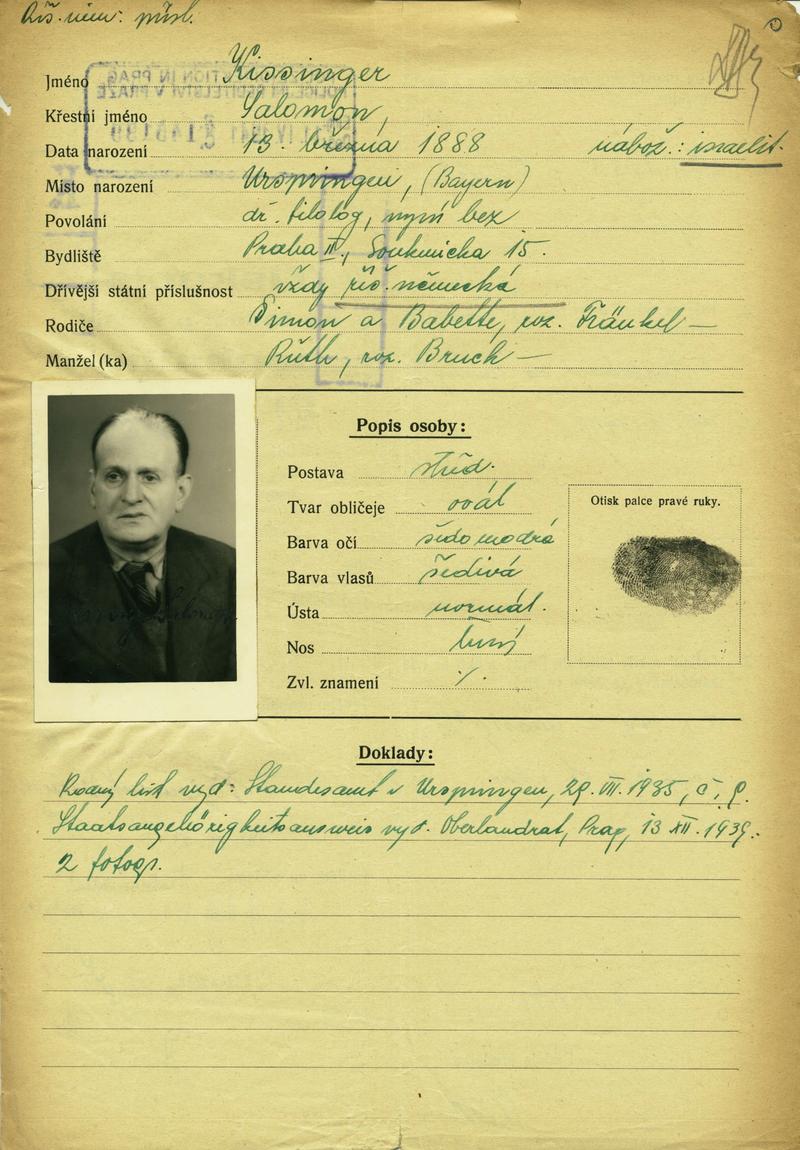 Říš. něm. přísl.
Jméno Kissinger
Křestní jméno Salomon,
Data narození 13. března 1888 nábož.: israelit.
Místo narození Urspringen, (Bayern)
Povolání dr. filolog, nyní bez
Bydliště Praha II., Soukenická 15.
Dřívější státní příslušnost vždy říš. německá
Rodiče Šimon a Babette, roz. Fränkel —
Manžel (ka) Ruth, roz. Bruch —
Popis osoby:
Postava střed.
Tvar obličeje ovál
Barva očí šedomodrá
Barva vlasů šedivá
Ústa normál.
Nos
Zvl. znamení ·/.
Otisk palce pravé ruky.
Doklady:
Rodný list vyd: Standesamt v Urspringen, 29. VII. 1935, č. 9.
Staatsangehörigkeitsausweis vyd. Oberlandrat, Prag, 13 XII. 1939.
2 fotogr.